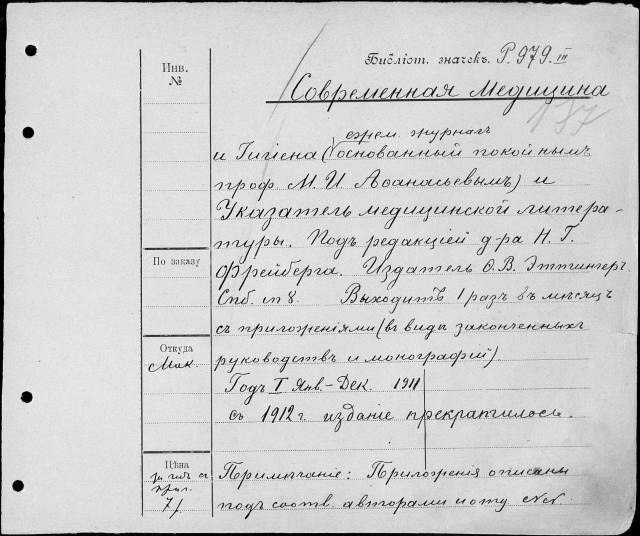 Библіот. значекъ. Р. 979. III
Инв.
№
Современная Медицина
137
ежем. журналъ
и Гигіена (основанный покойнымъ
проф. М. И. Аѳанасьевымъ) и
Указатель медицинской литера-
туры. Подъ редакціей д-ра Н. Г.
По заказу
Фрейберга. Издатель Ѳ. В. Эттингеръ.
Спб. in 8. Выходитъ 1 разъ въ мѣсяцъ
съ приложеніями (въ видѣ законченныхъ
Откуда
Мак.
руководствъ и монографій)
Годъ I Янв.-Дек. 1911
съ 1912 г. изданіе прекратилось.
Цѣна
за годъ съ
прил.
7 р.
Примѣчаніе: Приложенія описаны
подъ соотв. авторами и отд. №№.